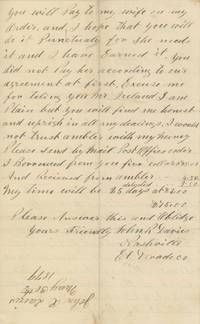 you will Pay to my wife on my
order, and I hope that you will
do it Punctualy for she needs
it and I have Earned it. You
did not Pay her according to our
agreement at first. Excuse me
for telling you Mr. Ireland I am
Plain but you will find me honest
and upright in all my dealings, I would
not trust ambler with my money
Please send by Mail Post Office order
I Borrowed from you five
And Received from ambler
my time will be 25 days at
$75.00
Please Answer this and Oblidge
Yours Friendly John R Davies
Nashville
John R. Davies
1879